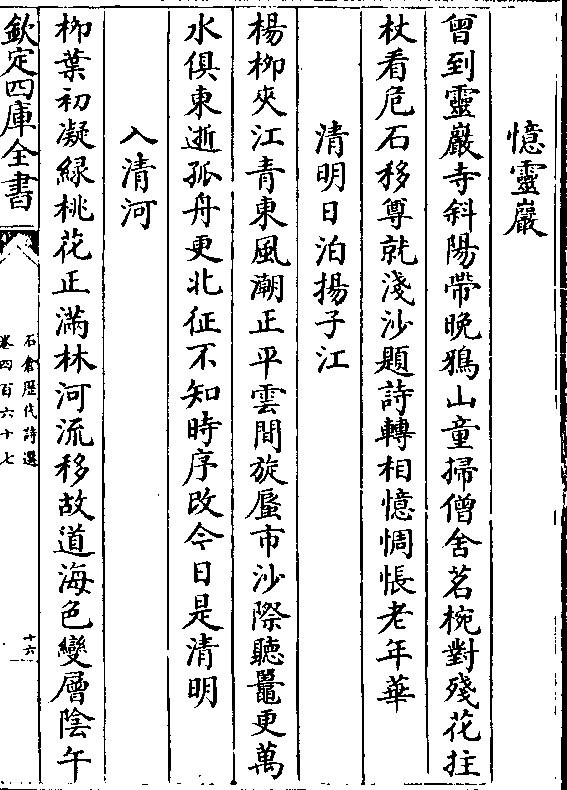 憶靈巖
曾到靈巖寺斜陽帶晩鴉山童掃僧舍茗椀對殘花拄
杖看危石移尊就淺沙題詩轉相憶惆悵老年華
清明日泊揚子江
楊柳夾江青東風潮正平雲間旋蜃市沙際聽鼉更萬
水俱東逝孤舟更北征不知時序改今日是清明
入清河
柳葉初凝緑桃花正滿林河流移故道海色變層陰午
欽定四庫全書
石倉歴代詩選
卷四百六十七
十六